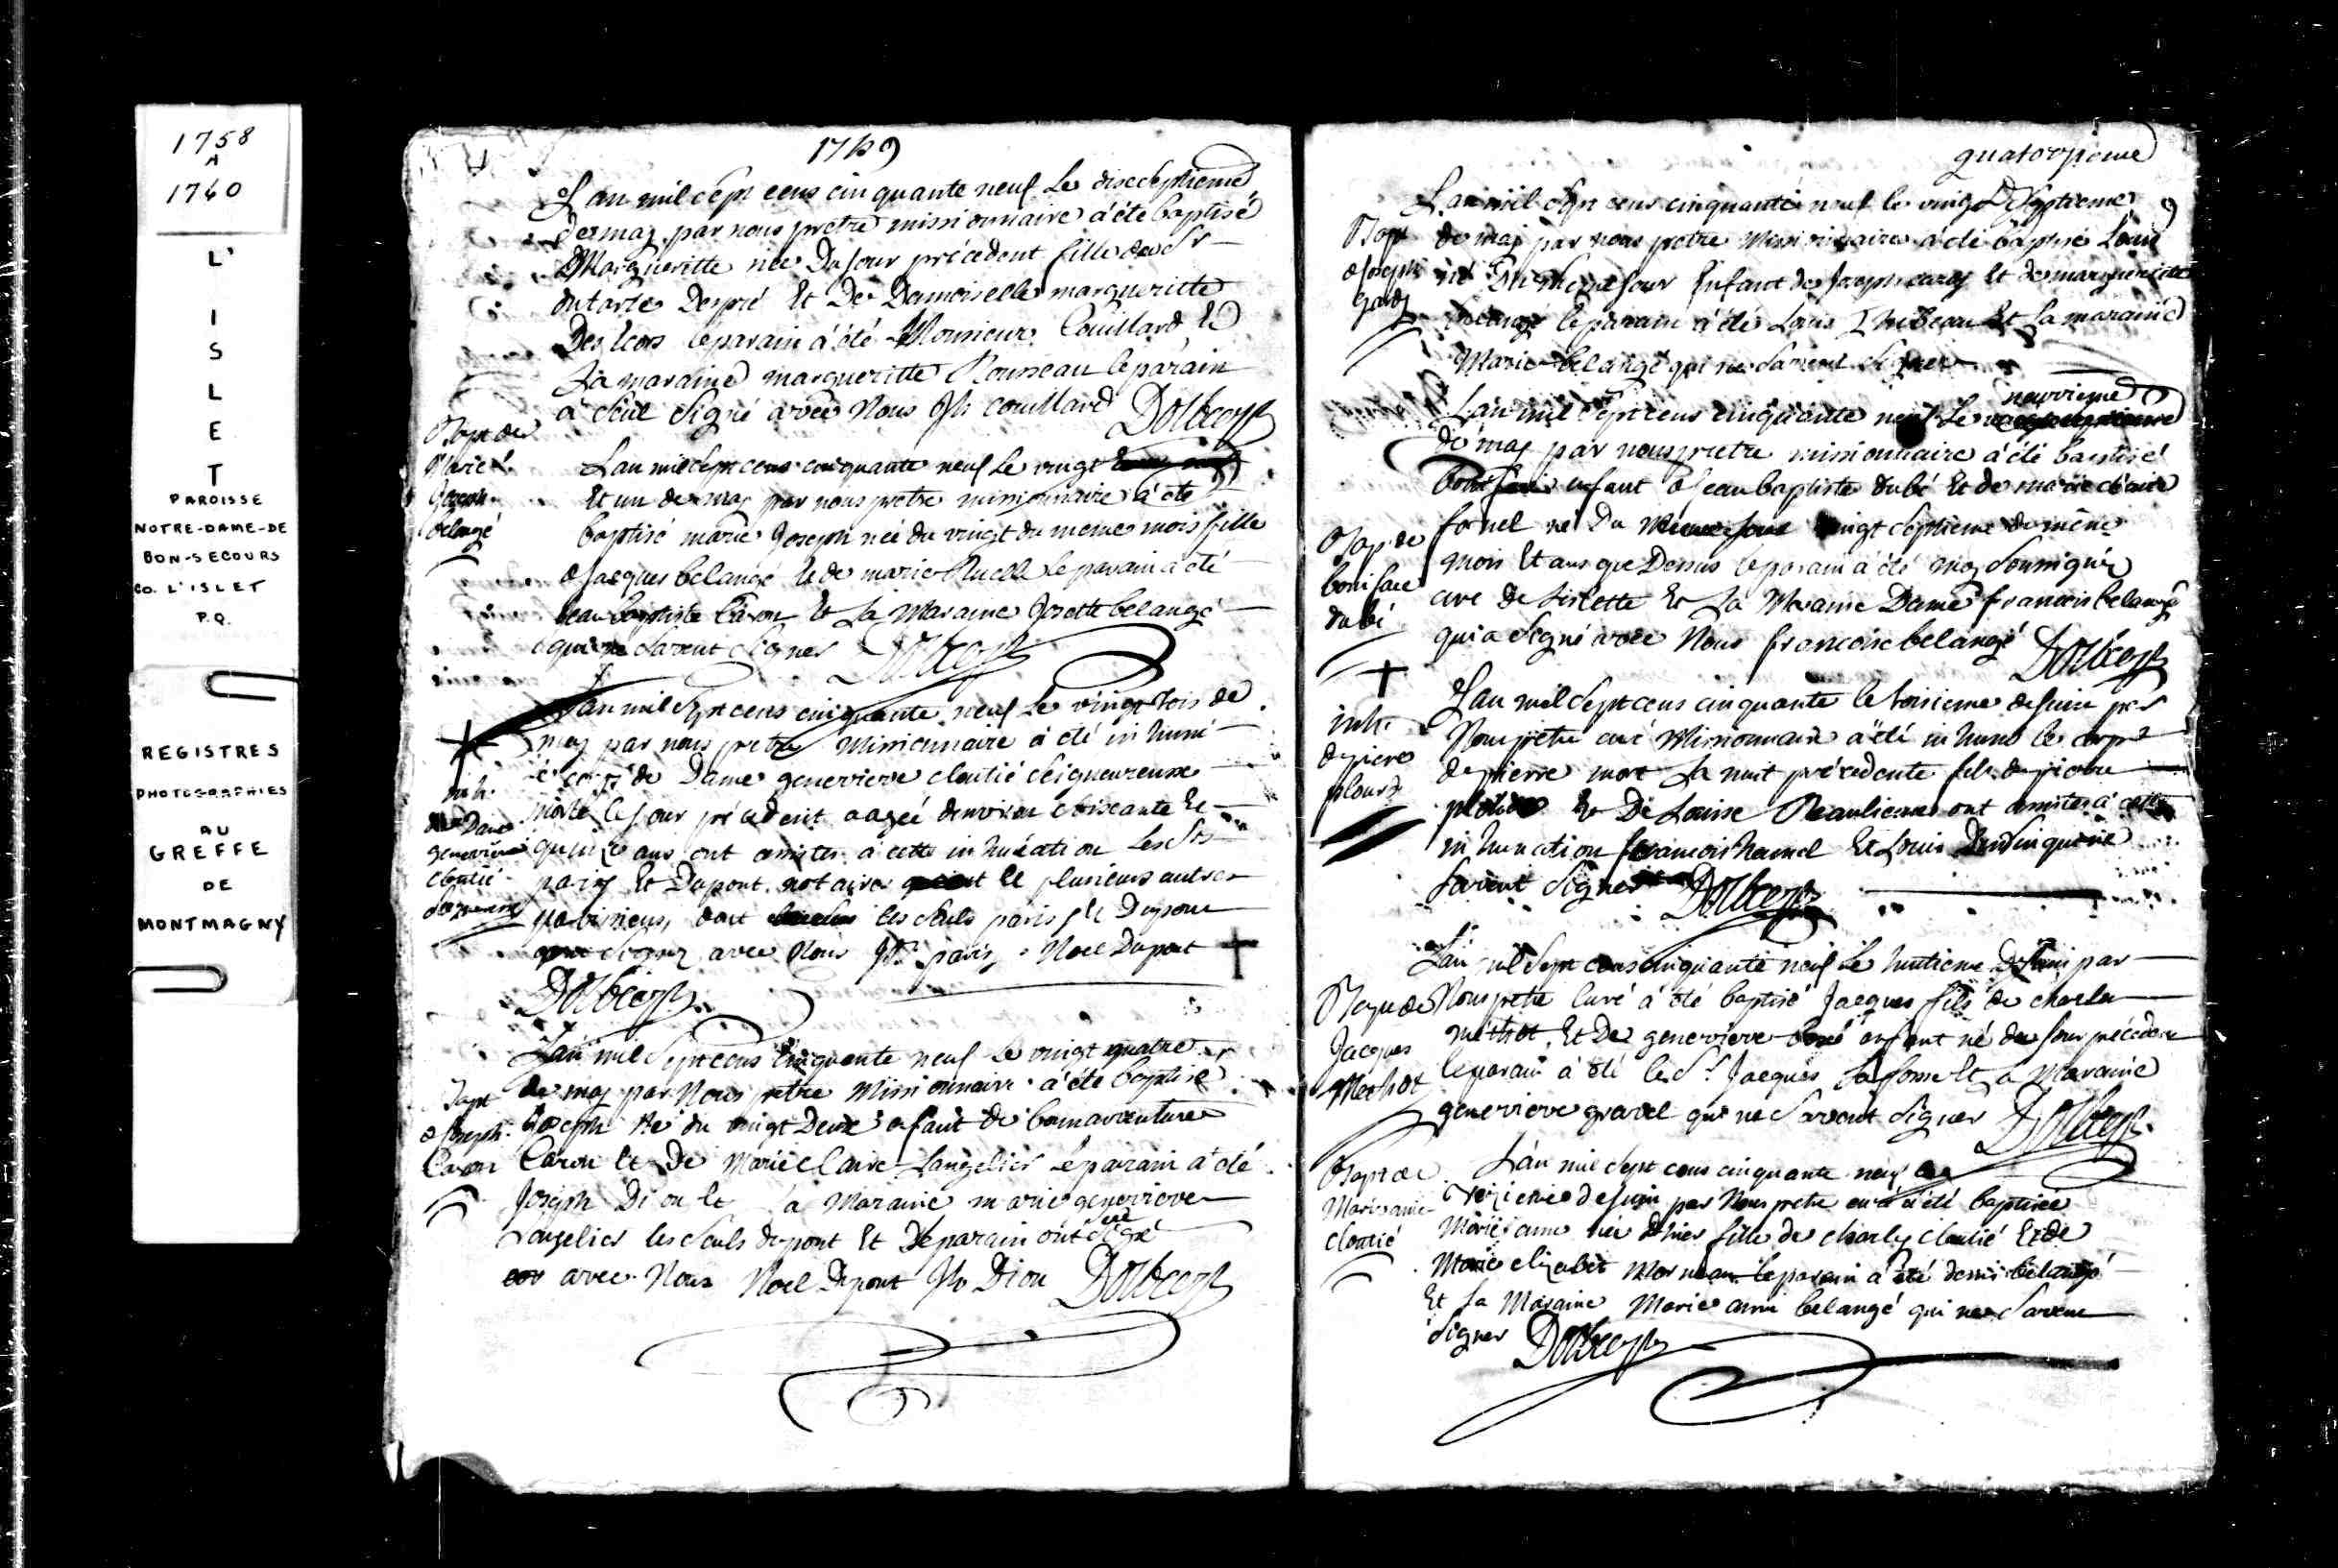 1758
A
1760
L'
I
S
L
E
T
PAROISSE
NOTRE-DAME-DE
BON-SECOURS
CO. L'ISLET
P.Q.
REGISTRES
PHOTOGRAPHIES
AU
GREFFE
DE
MONTMAGNY
1759
L'an mil sept cens cinquante neuf le diseptieme
de may par nous pretre missionnaire a été baptisé
Margueritte née du jour précédent fille de Sr
dutartre Despré Et De Demoiselle margueritte
Des le parain a été Monsieur Couillard et
La maraine margueritte Rousseau le parain
a seul signé avec Nous Jh couillard Dolbecpt
Bapt de
Marie
Joseph
belangé
L'an mil sept cens cinquante neuf le vingt
Et un de may par nous pretre missionnaire a été
baptisé marie Joseph née du vingt du meme mois fille
de Jacques belangé et de marie le parain a été
jean baptiste Caron Et La Maraine Josette belangé
qui ne savent signer Dolbecpt
L'an mil sept cens cinquante neuf le vingt trois de
may par nous pretre Missionnaire a été inhumé
le corps de Dame genevieve cloutié seigneuresse
morte le jour précédent aagée denviron soiscante Et
quinze ans ont assistes a cette inhumation les Srs
paris Et Dupont notaire et plusieurs autres
paroissiens, dont les seuls paris Et Dupont
signez avec Nous paris Noel Dupont
Dolbecpt
inh.
Dame
genevieve
cloutié
L'an mil sept cens cinquante neuf le vingt quatre
de may par Nous pretre Missionnaire a été baptisé
Joseph né du vingt Deux enfant de bonnaventure
Caron et De Marie Claire Langelier le parain a été
Joseph Dion et la Maraine marie genevieve
Langelier les seuls dupont Et le parain ont signé
avec Nous Noel Dupont Jh Dion Dolbecpt
Bapt
de Joseph
Caron
quatorzieme
L'an mil sept cens cinquante neuf le vingt Septieme
de may par nous pretre Missionnaire a été baptisé Louis
né Du meme jour Enfant de Joseph Et de margueritte
belangé le parain a été Louis Thibeau Et La maraine
Marie belangé qui ne savent signer
Bapt
de Joseph
L'an mil sept cens cinquante neuf le
neuvieme
de may par nous pretre missionnaire a été baptisé
boniface enfant de jean baptiste dubé Et de marie claire
fornel né Du vingt septieme du même
mois Et ans que Dessus le parain a été moy soussigné
curé de lislette Et La Maraine Dame francois belangé
qui a signé avec Nous francoise belangé Dolbecpt
Bap. de
boniface
dubé
L'an mil sept cens cinquante le troisieme de juin par
Nous pretre curé Missionnaire a été inhumé le corps
de pierre mort La nuit précedente fils de pierre
Et De Louise Beaulieu ont assistes a cette
inhumation francois hamel Et Louis qui ne
savent signer Dolbecpt
inh.
de piere
L'an mil sept cens cinquante neuf le huitieme De Juin par
Nous pretre Curé a été baptisé Jacques fils de charles
méthot Et De genevieve enfant né du jour précédent
le parain a été le Sr Jacques Et La Maraine
genevieve gravel qui ne savent signer Dolbecpt
Bapt de
Jacques
Methot
L'an mil sept cens cinquante neuf le
treizieme de juin par Nous pretre curé a été baptisée
Marie anne née d'hier fille de charly cloutié Et de
Marie elizabet Morneau le parain a été denis belangé
Et La Maraine Marie anne belangé qui ne savent
signer Dolbecpt
Bapt de
Marie anne
cloutié